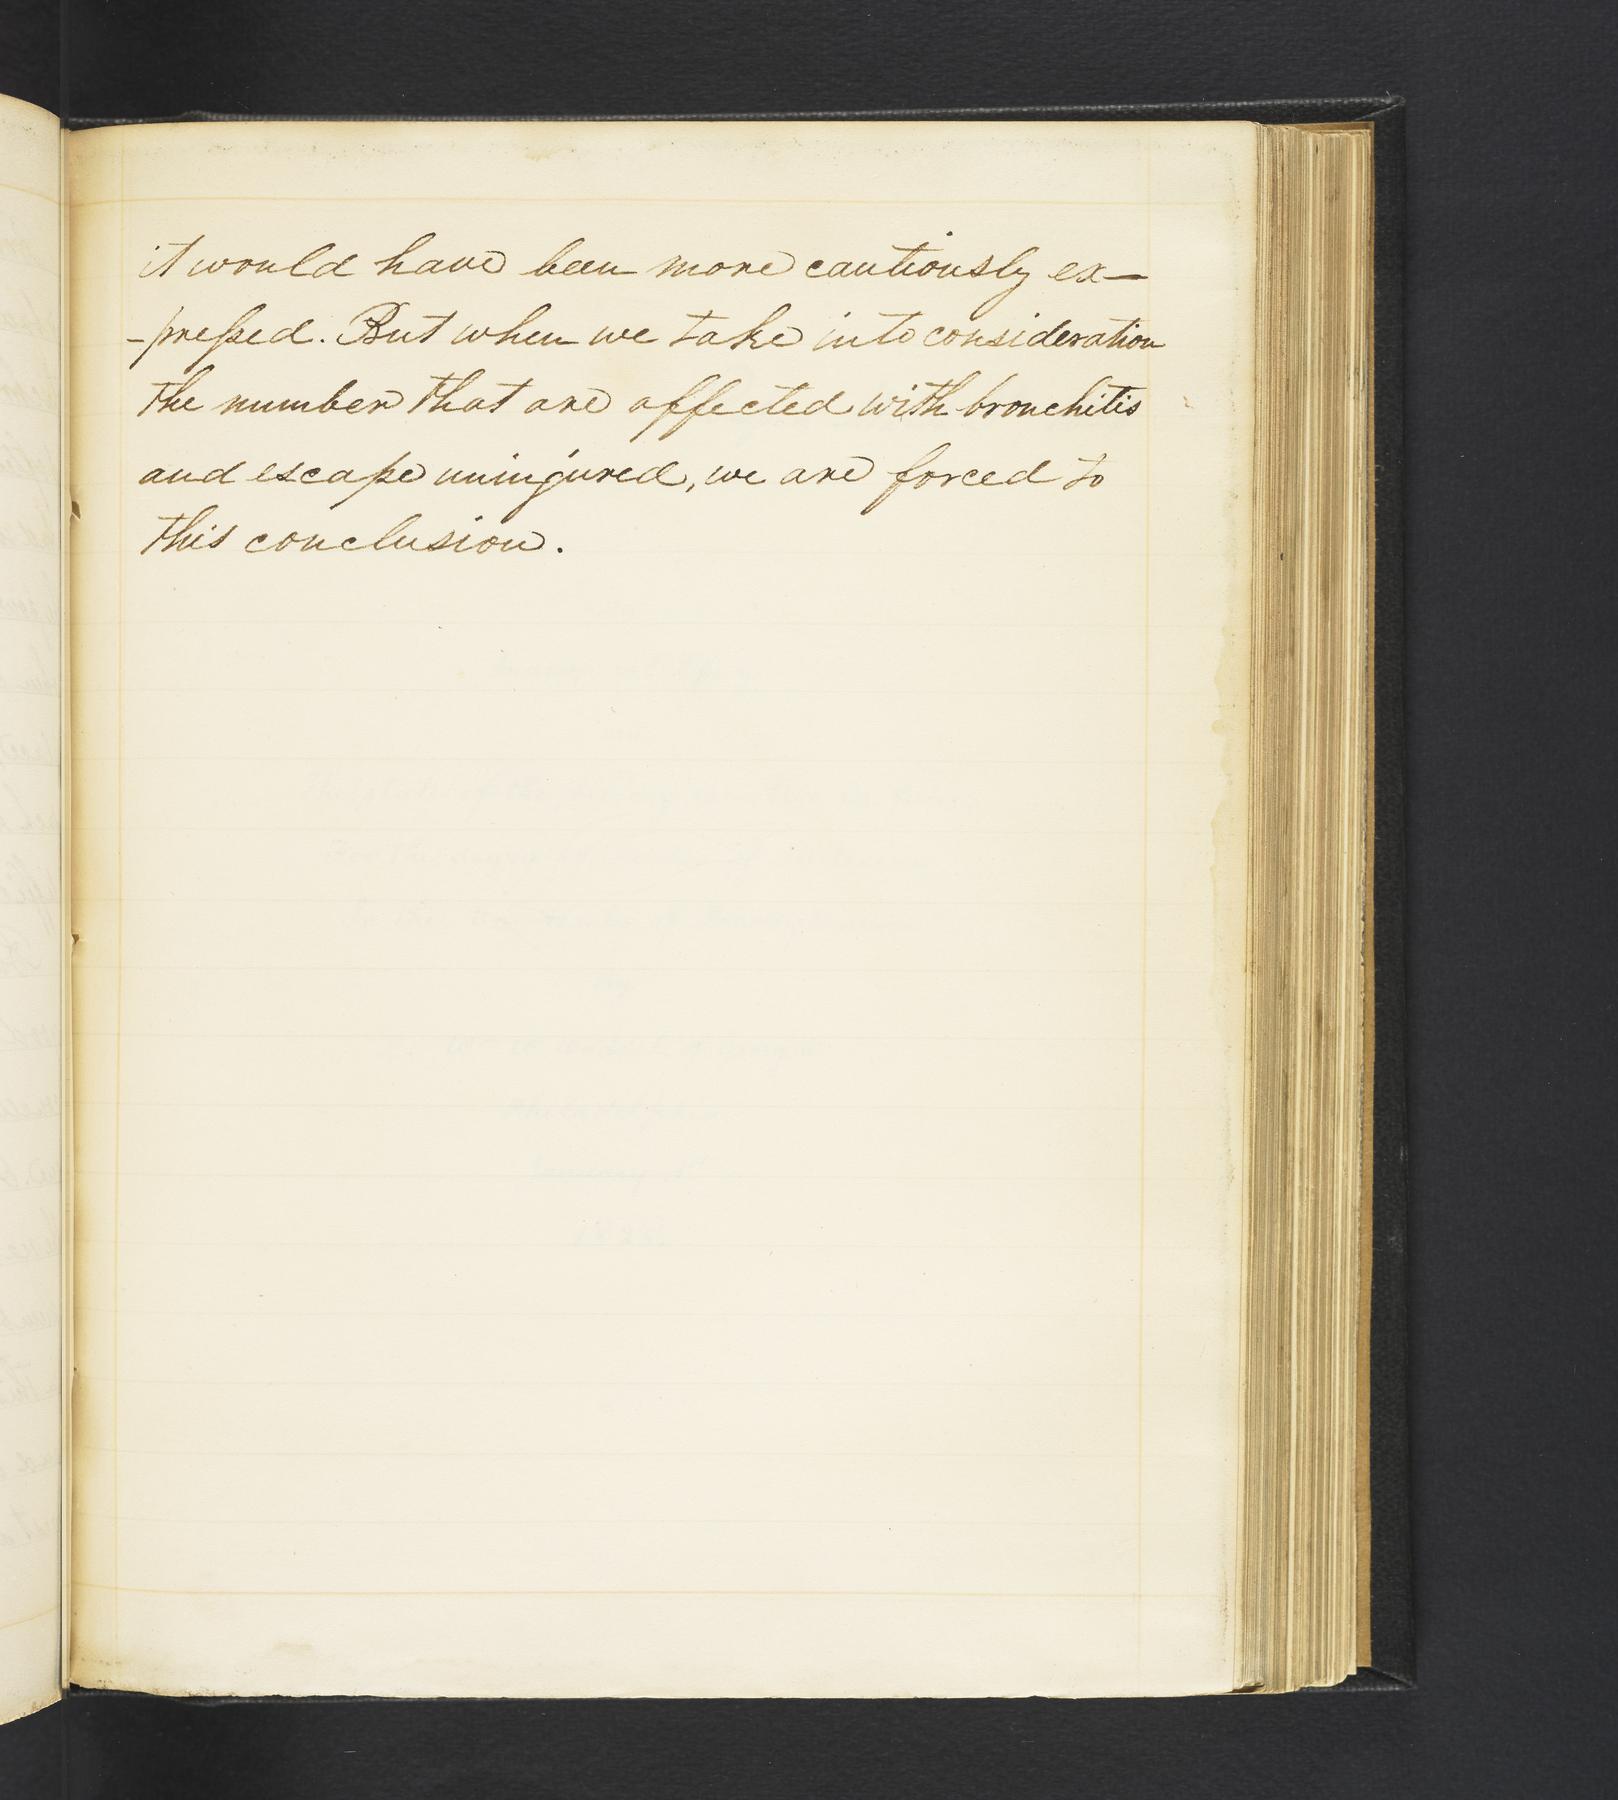 it would have been more cautiously ex—
-preſsed. But when we take into consideration
the number that are affected with bronchitis
and escape uninjured, we are forced to
this conclusion.